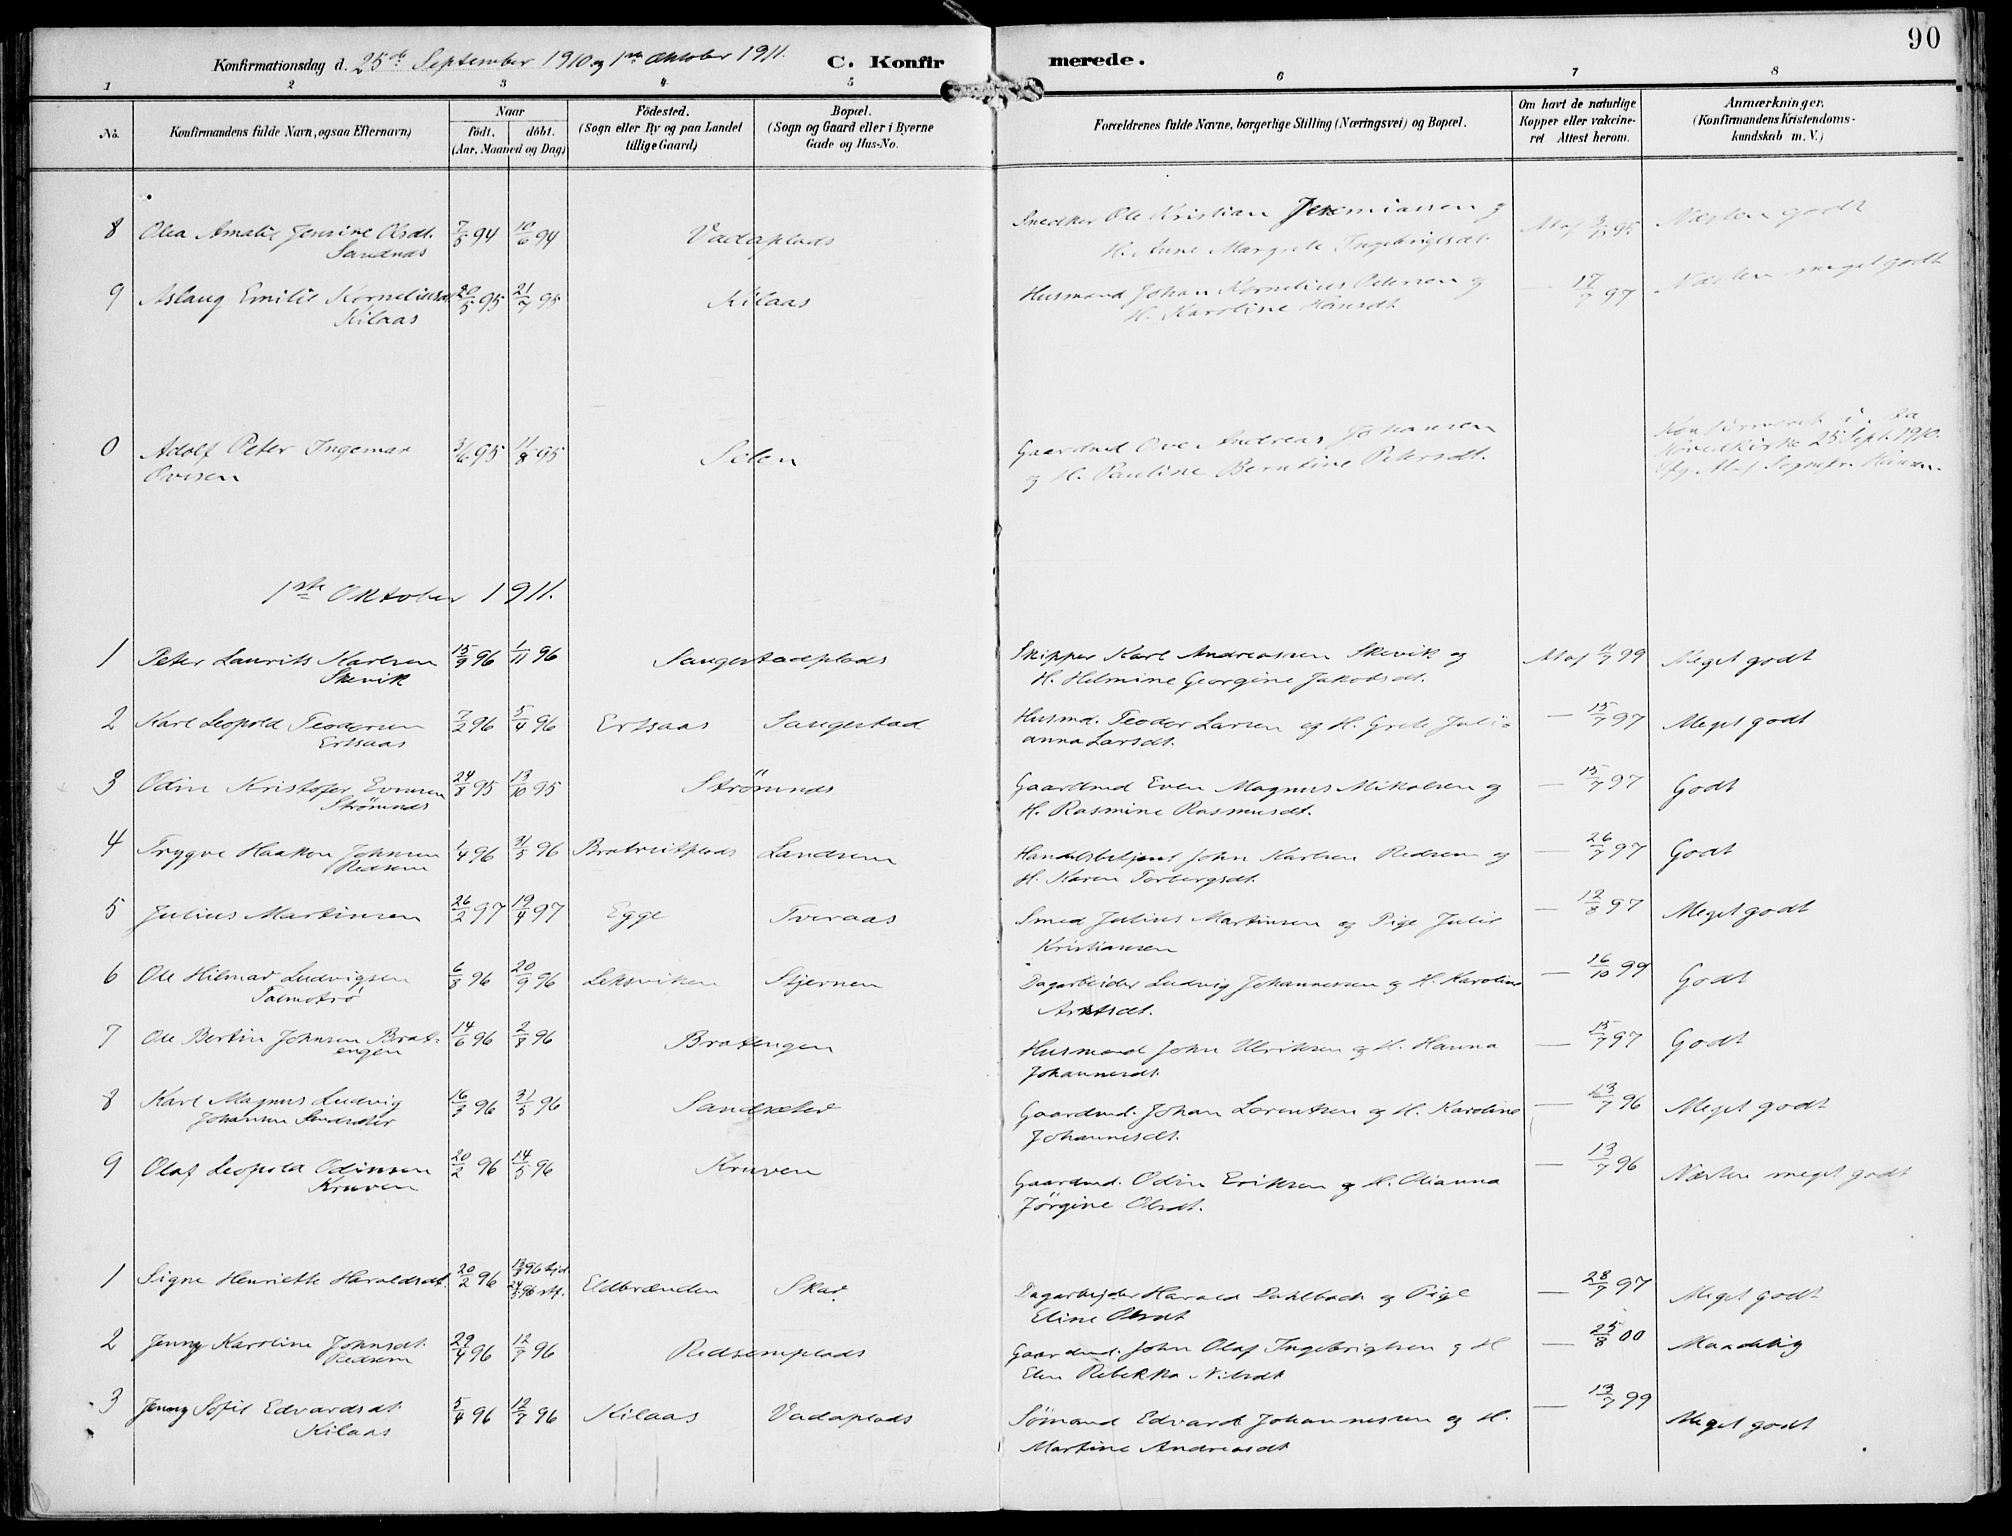 90
Konfirmationsdag d. 25de September 1910 og 1ste Oktober 1911. C. Konfirmerede.
1 2 3 4 5 6 7 8
No. Konfirmandens fulde Navn, ogsaa Efternavn) Naar födt. döbt. (Aar, Maaned og Dag) Födested. (Sogn eller By og paa Landet tillige Gaard) Bopæl. (Sogn og Gaard eller i Byerne Gade og Hus-No. Forældrenes fulde Navne, borgerlige Stilling (Næringsvei) og Bopæl. Om havt de naturlige Kopper eller vakcineret Attest herom. Anmærkninger. (Konfirmandens Kristendomskundskab m. V.)
8 Olea Amalie Jensine Olsdt. 7/5 94 10/6 94 Vadaplads Snedker Ole Kristian Jeremiassen og Næsten godt
Sandnes H. Anne Margrete Ingebrigtsdt.
9 Aslaug Emilie Korneliusdt. 20/5 95 21/7 95 Kilaas Husmand Johan Kornelius Petersen og — 17/7 97 Næsten meget godt
Kilaas H. Karoline Hansdt.
0 Adolf Peter Ingemar 3/6 95 11/8 95 Selen Gaardmd Ove Andreas Johansen Konfirmeret i
Ovesen og H. Pauline Berntine Petersdt. Hovedkirke 25 Sept. 1910.
1ste Oktober 1911.
1 Peter Laurits Karlsen 15/9 96 1/11 96 Saugestadplads Skipper Karl Andreassen Skevik og 99 Meget godt
Skevik H. Helmine Georgine Jakobsdt.
2 Karl Leopold Teodorsen 7/2 96 5/4 96 Ertsaas Saugestad Husmd. Teodor Larsen og H. Grete Juli- — 15/7 97 Meget godt
Ertsaas anna Larsdt.
3 Odin Kristofer Evensen 24/8 95 13/10 95 Strömnds Gaardmd Even Magnus Mikalsen og — 15/7 97 Godt
Strömnds H. Rasmine Rasmusdt.
4 Trygve Haakon Johnsen 1/4 96 31/5 96 Bratreitplads Landsem Handelsbetjent John Karlsen Redsem og — 26/7 97 Godt
Redsem H. Karen Torbergsdt.
5 Julius Martinsen 26/2 97 19/4 97 Egge Tveraas Smed Julius Martinsen og Pige Julie — 12/8 97 Meget godt
Kristiansen
6 Ole Hilmar Ludvigsen 6/8 96 20/9 96 Leksviken Stjernen Dagarbeider Ludvig Johannessen og H. Karoline — 16/10 99 Godt
7 Ole Bertin Johnsen Brat- 14/6 96 2/8 96 Bratengen Husmand John Ulriksen og H. Hanna — 15/7 97 Godt
engen Johannesdt.
8 Karl Magnus Ludvig 16/3 96 31/5 96 Sandsæter Gaardmd. Johan Lorentsen og H. Karoline — 13/7 96 Meget godt
Johansen Sandsæter Johannesdt.
9 Olaf Leopold Odinsen 20/2 96 14/5 96 Kruven Gaardmd. Odin Eriksen og H. Olianna — 13/7 96 Næsten meget godt
Kruven Jörgine Olsdt.
1 Signe Henriette Haraldsdt. 20/2 96 Eldbrænden Skar Dagarbejder Harald Dahlback og Pige — 28/7 97 Meget godt
Eline Olsdt
2 Jenny Karoline Johnsdt. 29/4 96 12/7 96 Redsemplads Gaardmd. John Olaf Ingebrigtsen og H — 25/8 00 Maadelig
Redsem Elen Rebekka Nilsdt
3 Jenny Sofie Edvardsdt. 5/4 96 12/7 96 Kilaas Vadaplads Sömand Edvard Johannessen og H. — 13/7 99 Meget godt
Kilaas Martine Andreasdt